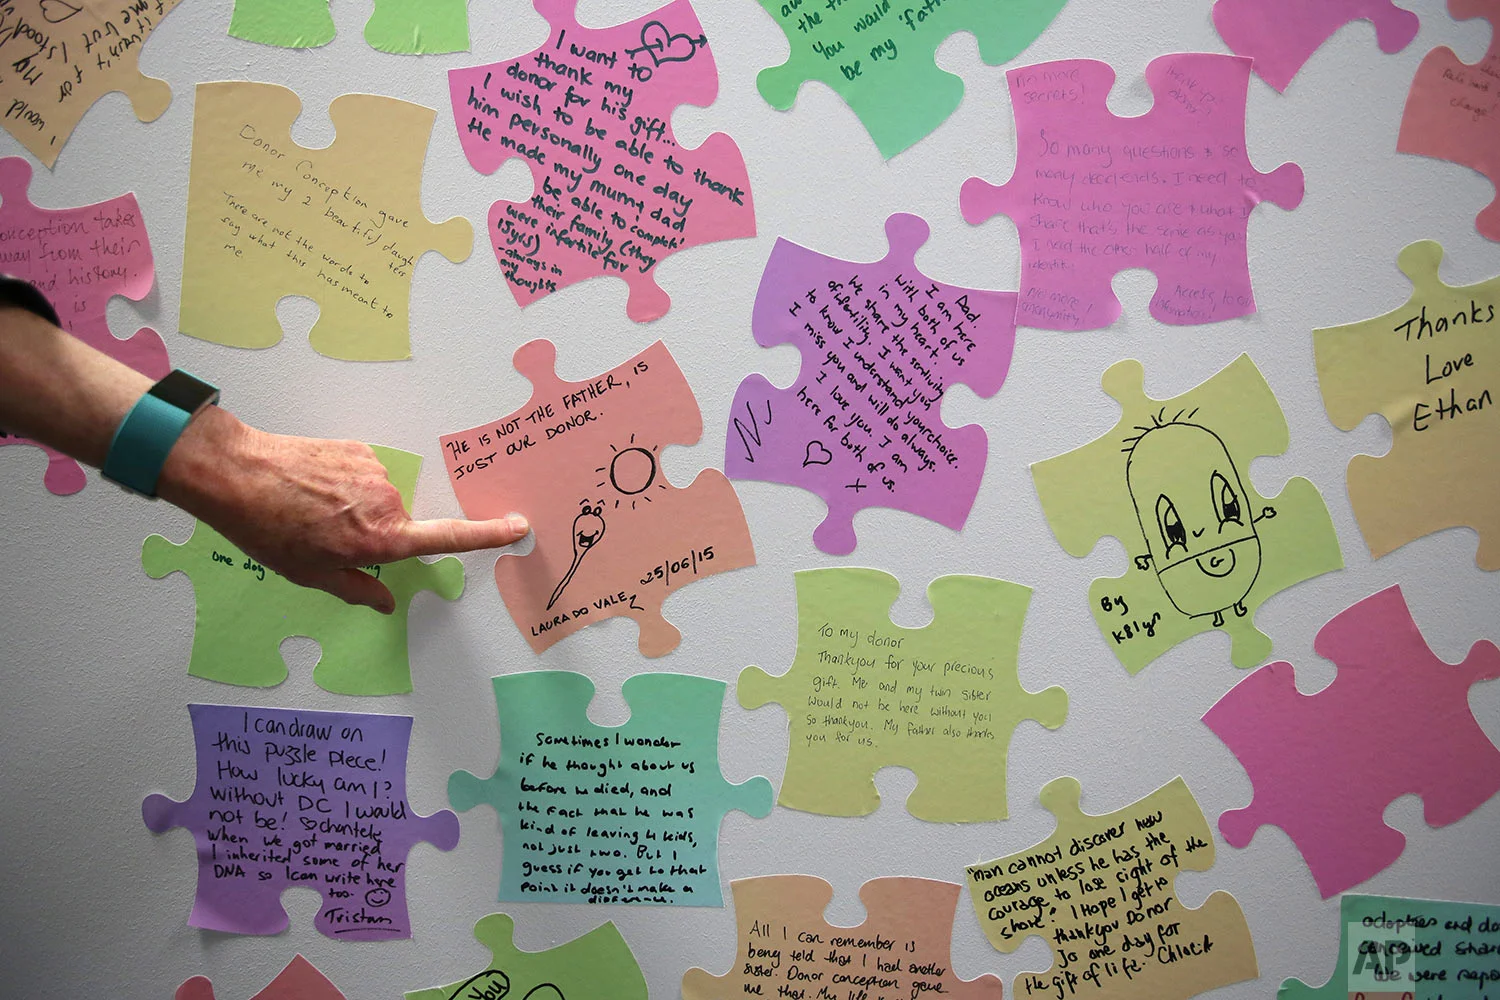 it wasn't for
me but I stood
would
the
You would
be my 'fath
I want to
thank my
donor for his gift...
I wish to be able to thank
him personally one day
He made my mum + dad
be able to complete
their family (they
were infertile for
15yrs)
- always in
my
thoughts
No more
secrets!
thank
donor
So many questions & so
many dead ends. I need to
know who you are & what I
share that's the same as you
I need the other half of my
identity.
No more
anonymity!
Access to
information!
change!
Donor Conception gave
me my 2 beautiful daugh
ters
There are not the words to
say what this has meant to
me
onception takes
way from their
and history.
is
I am here
with both of us
in my heart.
We share the
of infertility. I want you
to know I understand your choice.
I miss you and will do always.
I love you. I am
here for both
of us.
x
Thanks
Love
Ethan
HE IS NOT THE FATHER, IS
JUST OUR DONOR.
25/06/15
LAURA DO VALE
one day
By
To my donor
Thankyou for your precious
gift. Me and my twin sister
would not be here without you
so thankyou. My father also thanks
you for us.
I can draw on
this puzzle piece!
How lucky am I?
without DC I would
not be!
When we got married
I inherited some of her
DNA so I can write here
too.
Tristan
Sometimes I wonder
if he thought about us
before he died, and
the fact that he was
kind of leaving 4 kids,
not just two. But I
guess if you get to that
point it doesn't make a
difference.
"Man cannot discover new
oceans unless he has the
courage to lose sight of the
shore". I hope I get to
thankyou Donor
one day for
the gift of life.
All I can remember is
being told that I had another
sister. Donor conception gave
me that. My life
You
adoptees and do
conceived share
We were
AP